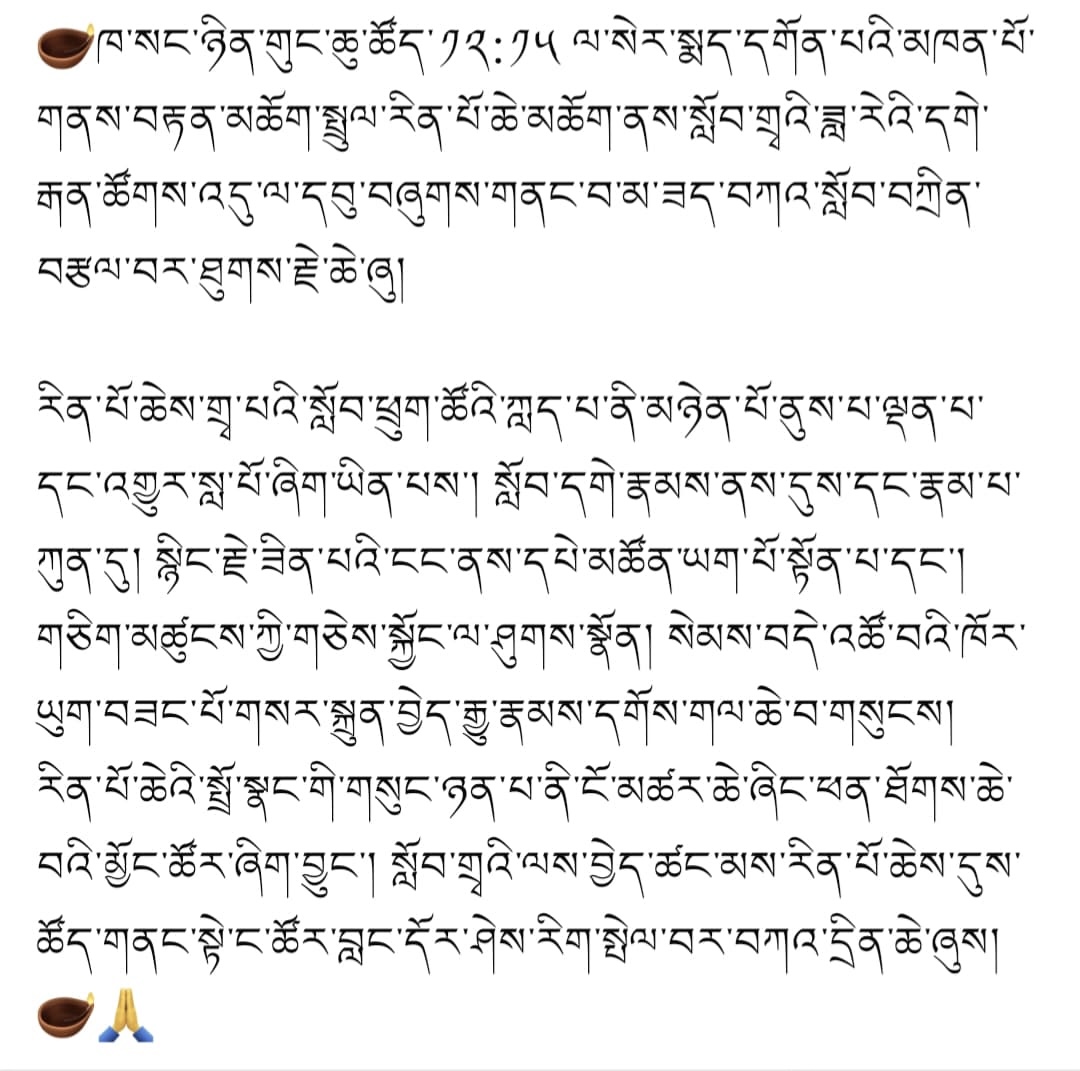 🪔ཁ་སང་ཉིན་གུང་ཆུ་ཚོད་༡༢:༡༥ ལ་སེར་སྨད་དགོན་པའི་མཁན་པོ་
གནས་བརྟན་མཆོག་སྤྲུལ་རིན་པོ་ཆེ་མཆོག་ནས་སློབ་གྲྭའི་ཟླ་རེའི་དགེ་
རྒན་ཚོགས་འདུ་ལ་དབུ་བཞུགས་གནང་བ་མ་ཟད་བཀའ་སློབ་བཀྲིན་
བརྩལ་བར་ཐུགས་རྗེ་ཆེ་ཞུ།
རིན་པོ་ཆེས་གྲྭ་པའི་སློབ་ཕྲུག་ཚོའི་ཀླད་པ་ནི་མཉེན་པོ་ནུས་པ་ལྡན་པ་
དང་འགྱུར་སླ་པོ་ཞིག་ཡིན་པས་། སློབ་དགེ་རྣམས་ནས་དུས་དང་རྣམ་པ་
ཀུན་དུ། སྙིང་རྗེ་ཟིན་པའི་ངང་ནས་དཔེ་མཚོན་ཡག་པོ་སྟོན་པ་དང་།
གཅིག་མཚུངས་ཀྱི་གཅེས་སྐྱོང་ལ་ཤུགས་སྣོན། སེམས་བདེ་འཚོ་བའི་ཁོར་
ཡུག་བཟང་པོ་གསར་སྐྲུན་བྱེད་རྒྱུ་རྣམས་དགོས་གལ་ཆེ་བ་གསུངས།
རིན་པོ་ཆེའི་སྤྲོ་སྣང་གི་གསུང་ཉན་པ་ནི་ངོ་མཚར་ཆེ་ཞིང་ཕན་ཐོགས་ཆེ་
བའི་མྱོང་ཚོར་ཞིག་བྱུང་། སློབ་གྲྭའི་ལས་བྱེད་ཚང་མས་རིན་པོ་ཆེས་དུས་
ཚོད་གནང་སྟེ་ང་ཚོར་བླང་དོར་ཤེས་རིག་སྤེལ་བར་བཀའ་དྲིན་ཆེ་ཞུས།
🪔🙏